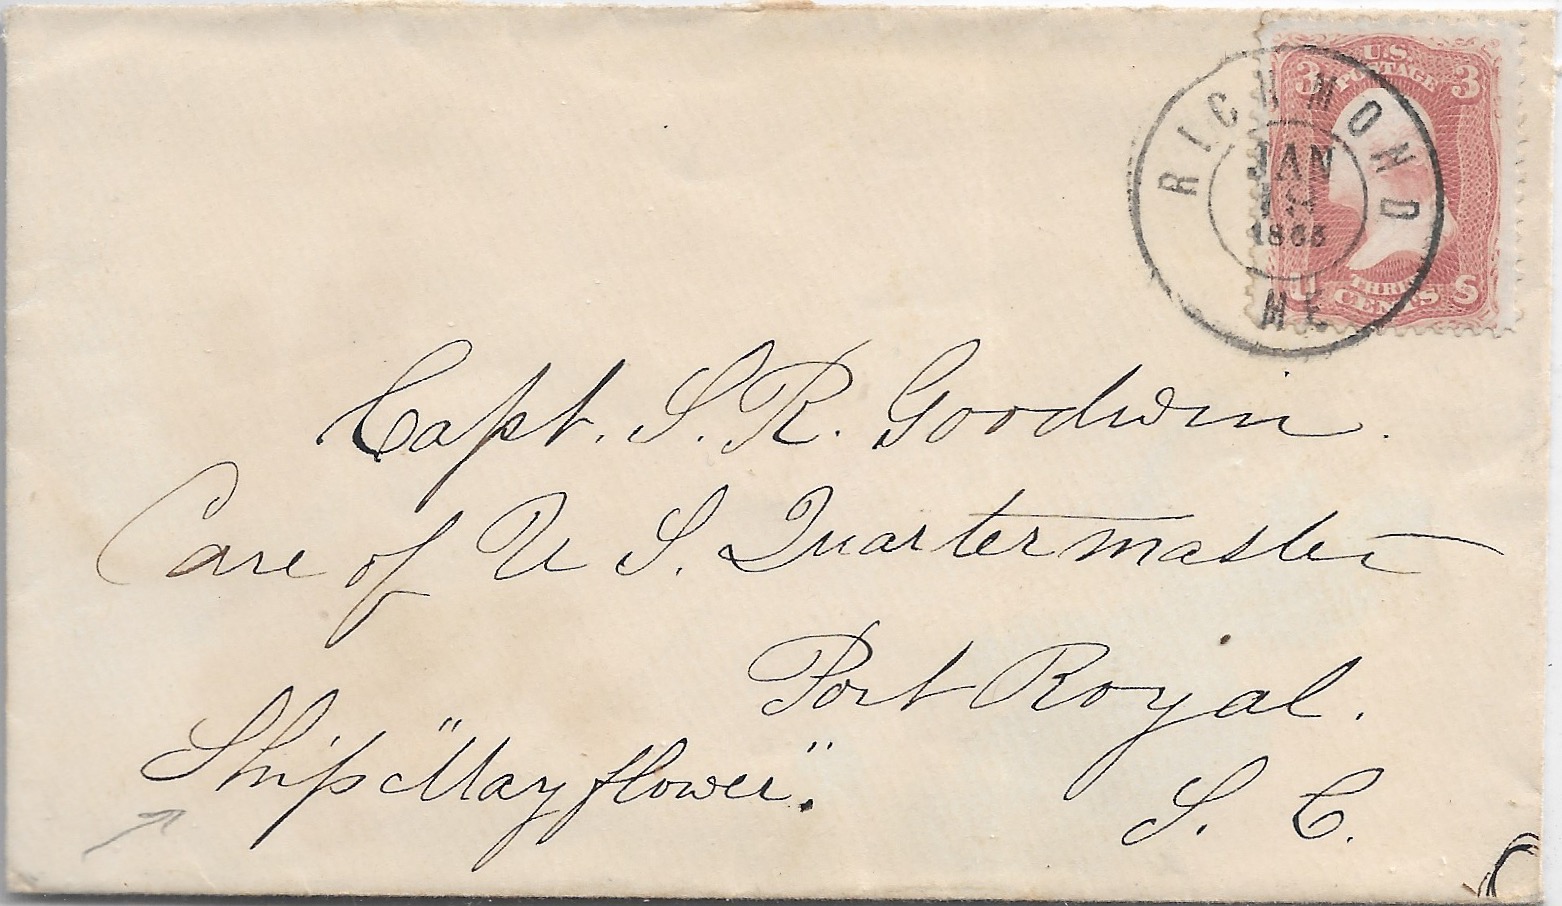 U.S.
POSTAGE
3 3
RICHMOND
JAN
1865
ME
U S
THREE
CENTS
Capt. S. R. Goodwin.
Care of U S. Quartermaster
Port Royal.
Ship "Mayflower".
S. C.